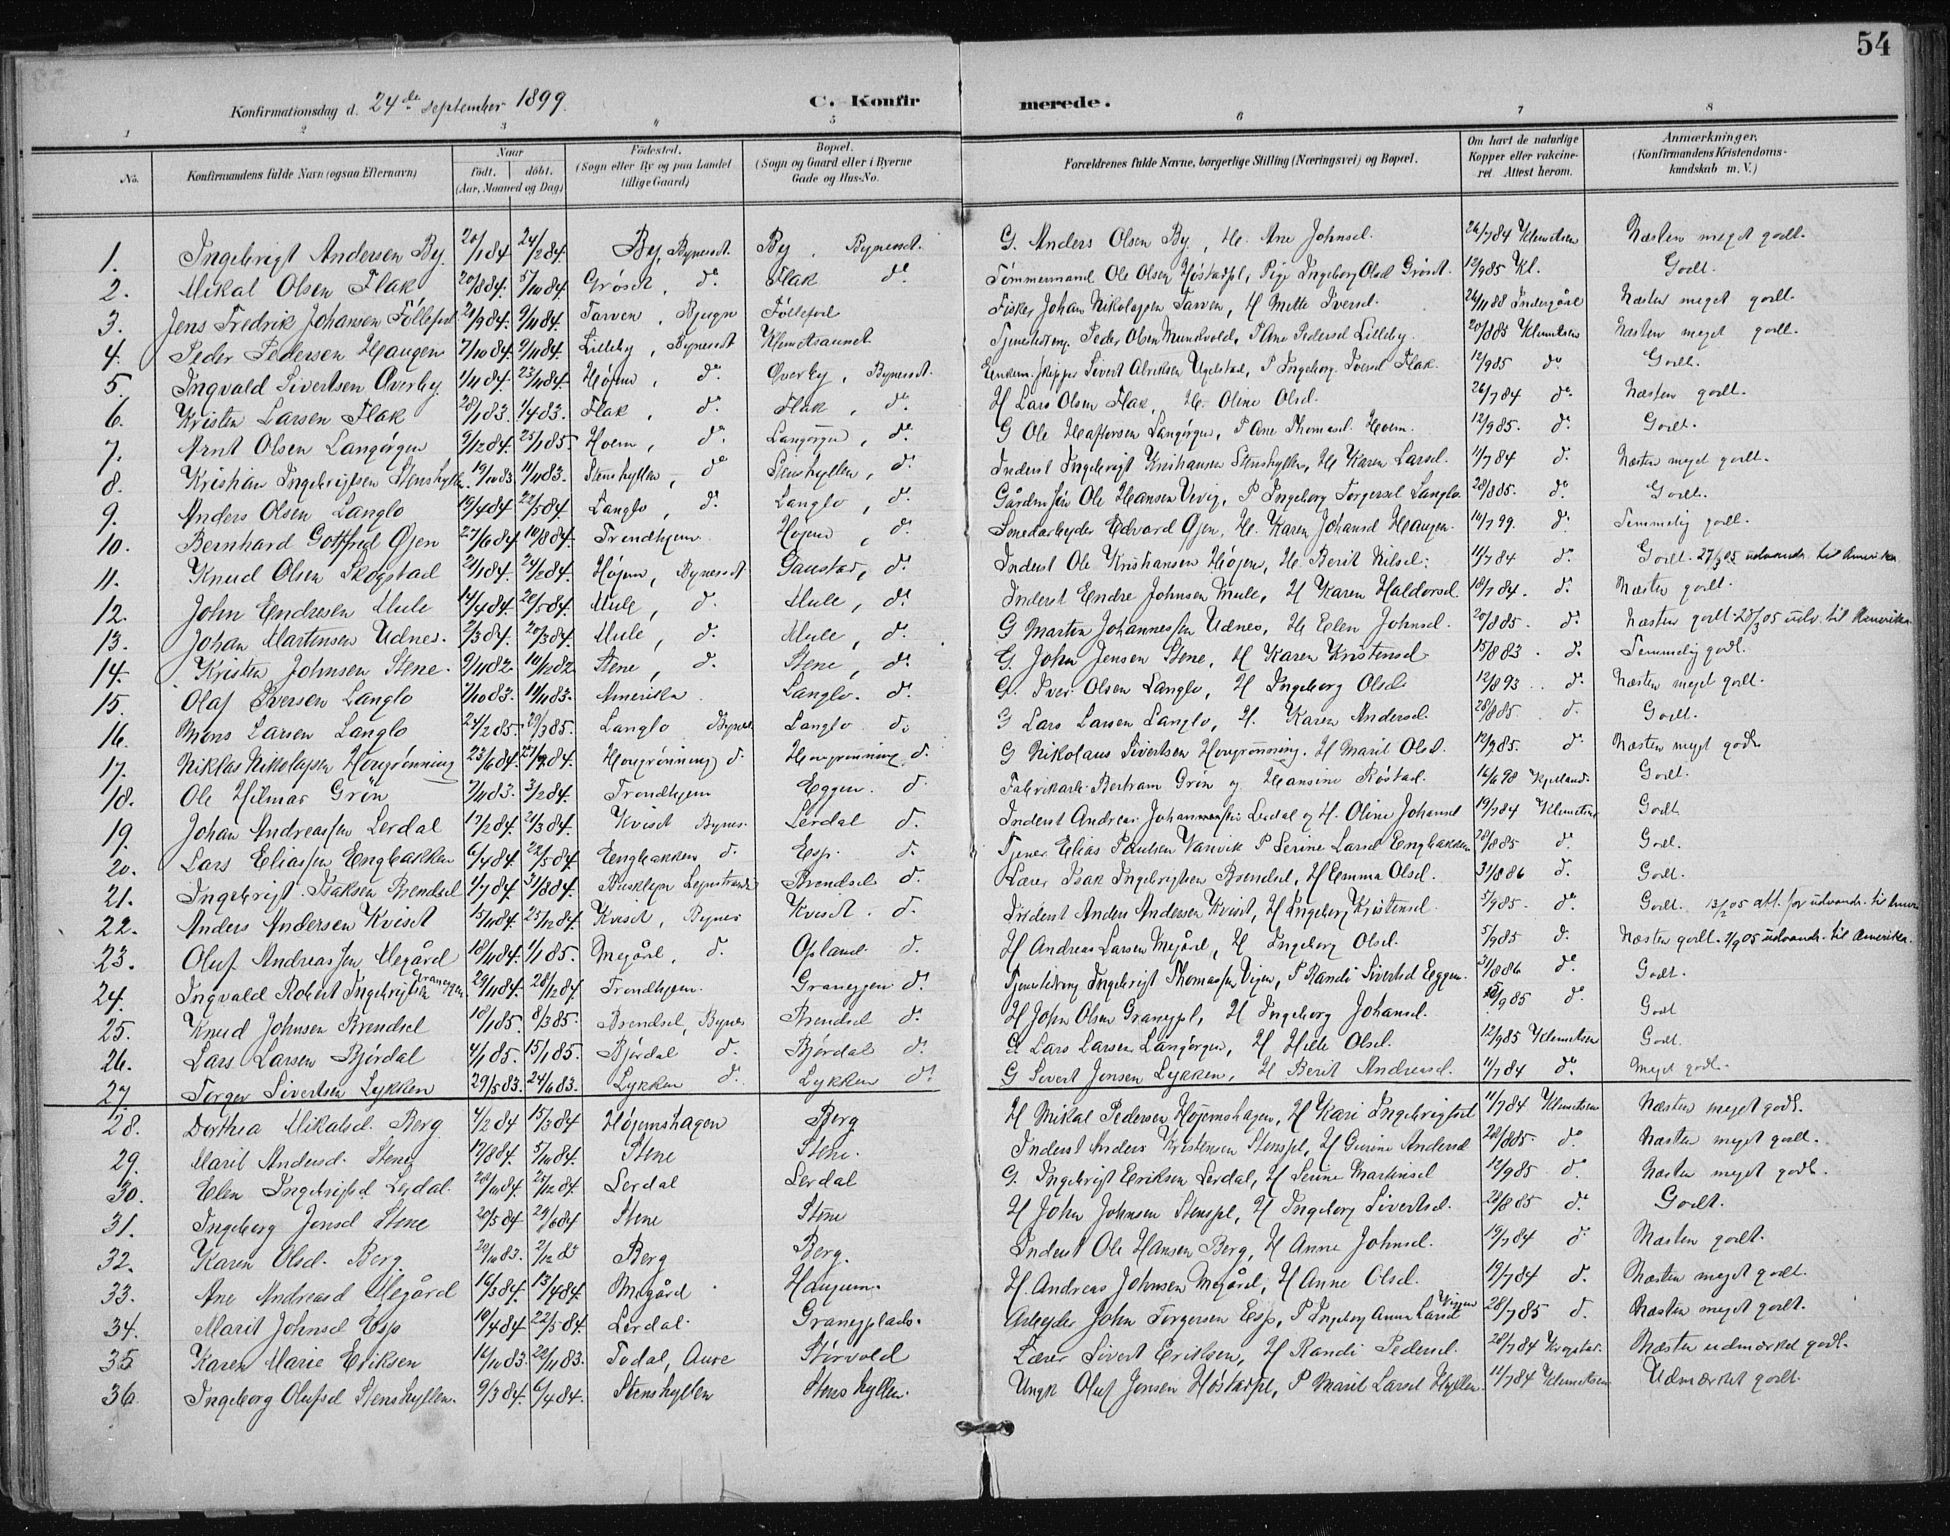 54
Konfirmationsdag d. 24de september 1899. C. Konfir merede.
1 2 3 4 5 6 7 8
No. Konfirmandens fulde Navn (ogsaa Efternavn) Naar født. døbt. (Aar, Maaned og Dag) Fødested. (Sogn eller By og paa Landet tillige Gaard) Bopæl. (Sogn og Gaard eller i Byerne Gade og Hus-No. Forældrenes fulde Navne, borgerlige Stilling (Næringsvei) og Bopæl. Om havt de naturlige Kopper eller vakcineret. Attest herom. Anmærkninger. (Konfirmandens Kristendomskundskab m. V.)
1. Ingebrigt Andersen By 20/1 84 24/2 84. By, Bynesset By, Bynesset. G. Anders Olsen By, H. Ane Johnsd. 26/7 84 Klemetsen Næsten meget godt.
2. Mikal Olsen Flak 20/8 84. 5/10 84. Grøset, do Flak do Tømmermand Ole Olsen Høstadpl, Pige Ingeborg Olsd Grøset. 12/9 85 Kl. Godt.
3. Jens Fredrik Johansen Føllefod 21/9 84. 9/11 84. Tarven, Bjugn Føllefod Fisker Johan Nikolaysen Tarven, H Mette Iversd. 26/11 88 Næsten meget godt.
4. Peder Pedersen Haugen 7/10 84. 9/11 84. Lilleby, Bynesset Klemetsaunet Tjenestedreng Peder Olsen Mundvold, P Ane Pedersd Lilleby. 20/8 85 Klemetsen Næsten meget godt.
5. Ingvald Sivertsen Øverby 1/11 84. 23/11 84. Højem, do. Øverby, Bynesset. Enkem. Skipper Sivert Ulriksen Ugelstad, P Ingeborg Iversd Flak 12/9 85 do Godt.
6. Kristen Larsen Flak 28/1 83. 1/4 83. Flak, do. Flak, do. H Lars Olsen Flak, H. Oline Olsd. 26/7 84 do Næsten godt.
7. Arnt Olsen Langørgen 9/12 84. 25/1 85. Hoem, do Langørgen, do. G Ole Haftorsen Langørgen, P Ane Thomasd. Hoem. 12/9 85. do. Godt.
8. Kristian Ingebrigtsen Stenshyllen 19/10 83. 11/11 83. Stenshyllen, do Stenshyllen, do. Inderst Ingebrigt Kristiansen Stenshyllen, H Karen Larsd. 11/7 84 do. Næsten meget godt.
9. Anders Olsen Langlo 19/4 84 22/5 84. Langlo, do. Langlo, do. Gårdmson Ole Hansen Vevig, P Ingeborg Torgersd Langlo. 28/8 85. do. Godt.
10. Bernhard Gottfried Øjen 27/6 84 10/8 84. Trondhjem. Højem, do. Smedarbeyder Edvard Øjen, H. Karen Johansd Haugen. 14/7 99. do. Temmelig godt.
11. Knud Olsen Skogstad 21/1 84. 24/2 84. Højem, Bynesset Gaustad, do. Inderst Ole Kristiansen Højem, H. Berit Nilsd. 11/7 84 do. Godt. 27/3 05 udvandr. til Amerika.
12. John Endresen Mule 14/4 84. 20/5 84. Mule, do. Mule, do. Inderst Endre Johnsen Mule, H Karen Haldorsd 18/7 84. do. Næsten godt.
13. Johan Martinsen Udnes. 2/3 84. 20/3 84. Mule, do. Mule, do. G Martin Johannessen Udnes, H Elen Johnsd. 20/8 85. do. Næsten godt 25/3 05 udv. til Amerika.
14. Kristen Johnsen Stene. 9/11 82. 10/12 82 Stene, do. Stene, do. G. John Jensen Stene, H Karen Kristensd 15/8 83. do. Temmelig godt.
15. Olaf Iversen Langlo 7/10 83. 11/11 83. Amerika. Langlo. do. G. Iver Olsen Langlo, H Ingeborg Olsd. 12/8 93. do. Næsten meget godt.
16. Mons Larsen Langlo 24/2 85. 29/3 85. Langlo Bynes. Langlo do. G Lars Larsen Langlo, H. Karen Andersd. 28/8 85. do. Godt.
17. Niklas Nikolaysen Hovgrønning 23/6 84. 27/7 84. Hovgrønning do. Hovgrønning do. G Nikolaus Sivertsen Hovgrønning. H Marit Olsd. 12/9 85. do Næsten megt godt
18. Ole Hilmar Grøn 7/11 83. 3/2 84. Trondhjem Eggen. do. Fabrikarb. Bertram Grøn og Hansine Røstad. 16/6 98 Kjelland. Godt.
19. Johan Andreassen Lerdal 17/2 84. 2/3 84. Kviset Bynes. Lerdal do. Inderst Andreas Johannessen Lerdal og H. Oline Johansd 19/7 84 Klemetsen Godt
20. Lars Eliassen Engbakken 6/4 84. 22/5 84. Engbakken do. Esp. do. Tjener Elias Paulsen Vanvik P Serine Larsd Engbakken 28/8 85 do. Godt.
21. Ingebrigt Isaksen Brendsel 1/7 84. 31/8 84. Leinstranden Brendsel do. Lærer Isak Ingebrigtsen Brendsel, H Emma Olsd. 31/8 86 do. Godt.
22. Anders Andersen Kviset 15/11 84. 25/12 84. Kviset, Bynes Kviset. do. Inderst Anders Andersen Kviset, H Ingeborg Kristensd. 5/9 85. do. Godt. 13/2 05 att. for udvandr. til Amer.
23. Oluf Andreassen Megård 18/11 84. 1/1 85. Megård, do. Opland. do. H Andreas Larsen Megård, H Ingeborg Olsd. 5/9 85 do. Næsten godt. 7/9 05 udvandr. til Amerika.
24. Ingvald Robert Ingebrigtsen Graneggen 29/11 84. 28/12 84. Trondhjem. Graneggen do. Tjenestedreng Ingebrigt Thomassen Vigen, P Randi Sivertsd Eggen. 31/8 86 do. Godt.
25. Knud Johnsen Brendsel 18/1 85. 8/3 85. Brendsel, Bynes Brendsel do. H John Olsen Granegpl, H Ingeborg Johansd. 5/9 85 do. Godt
26. Lars Larsen Bjørdal 4/1 85. 15/1 85. Bjørdal do. Bjørdal do. G Lars Larsen Langørgen, H Olsd. 12/9 85 Klemetsen Godt.
27 Torger Sivertsen Lykken 29/5 83. 24/6 83. Lykken do. Lykken do. G Sivert Jonsen Lykken, H Berit Andreasd. 11/7 84 do. Meget godt.
28. Dorthea Mikalsd. Berg 4/2 84 15/3 84 Højemshagen Berg H Mikal Pedersen Højemshagen, H Kari Ingebrigtsd 11/7 84 Klemetsen Næsten meget godt.
29. Marit Andersd. Stene 17/8 84. 5/10 84. Stene Stene. Inderst Anders Kristensen Stenspl, H Gurine Andersd 28/8 85. do Næsten meget godt.
30. Elen Ingebrigtsd Lerdal. 20/11 84. 25/12 84. Lerdal Lerdal G. Ingebrigt Eriksen Lerdal, H Serine Martinsd 12/9 85. do Næsten meget godt.
31. Ingeborg Jonsd Stene 20/5 84 29/6 84 Stene Stene H John Johnsen Stenspl, H Ingeborg Sivertsd. 28/8 85 do. Godt.
32. Karen Olsd. Berg. 20/10 83. 2/12 83 Berg Berg. Inderst Ole Hansen Berg, H Anne Johnsd. 19/7 84 do. Næsten godt.
33. Ane Andreasd Megård 16/3 84. 13/4 84. Megård Haugum. H Andreas Johnsen Megård, H Anne Olsd. 19/7 84 do. Næsten meget godt.
34. Marit Johnsd Esp 19/4 84 22/5 84. Lerdal. Granegplads. Arbejder John Torgersen Esp, P Ingeborg Anna Larsd Vigen 28/7 85 do. Næsten meget godt.
35 Karen Marie Eriksen 16/10 83. 22/11 83. Todal, Aure Størvold Lærer Sivert Eriksen, H Randi Pedersd. 28/7 84 Næsten udmærket godt.
36. Ingeborg Olufsd Stenshyllen. 9/3 84. 6/4 84. Stenshyllen Stenshyllen. Ungk Oluf Jensen Høstadpl, P Marit Larsd Hyllen. 11/7 84 Klemetsen Udmærket godt.